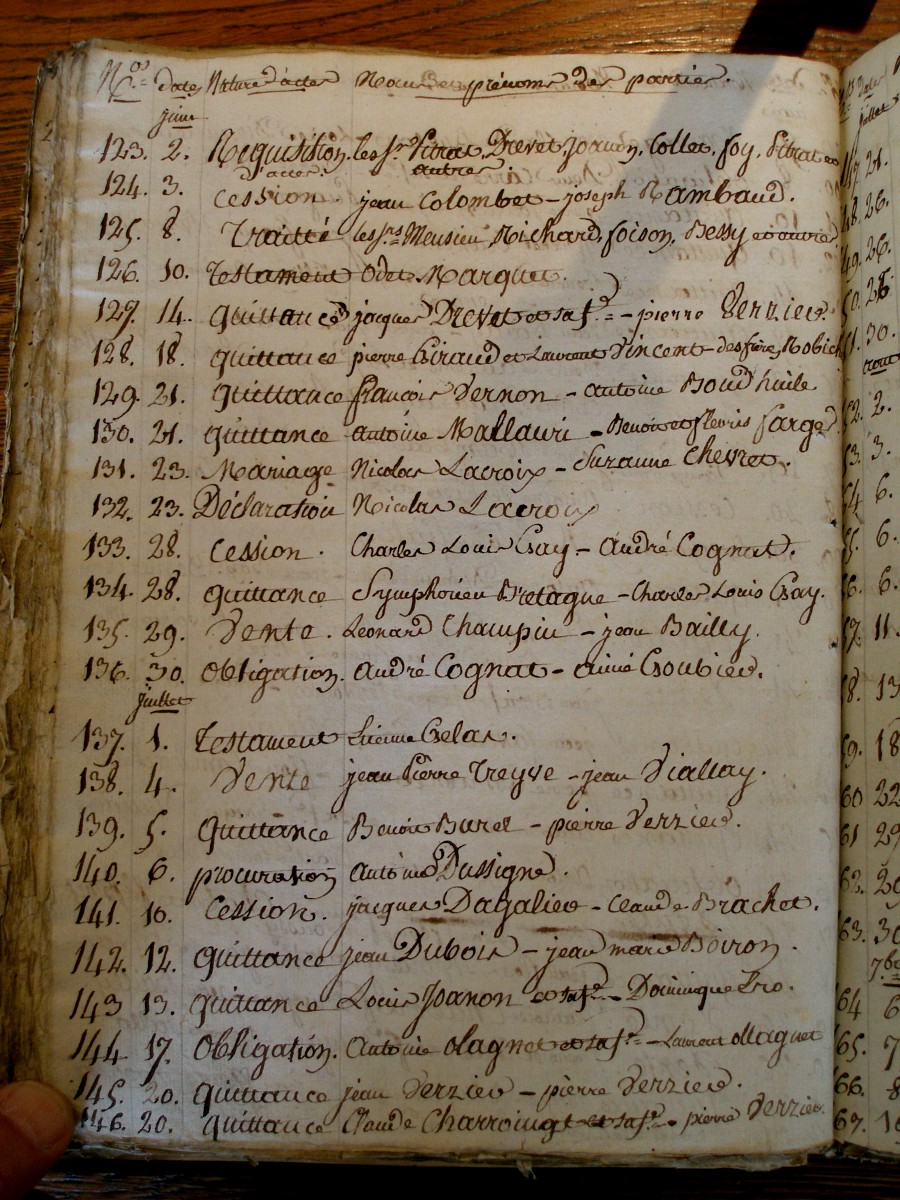 Nos. dates Nature d'actes Noms et prénoms des parties.
juin
123. 2. Réquisition les srs Pitrat, Drevet joanon, Collet, foy, Pitrat et
d'acte. autres.
124. 3. Cession. jean Colombet - joseph Rambaud.
125. 8. Traitté les srs Meusieu Richard, foison, Bessy et autres
126. 10. Testament Odet Marquet.
127. 14. quittance jacques Drevet et sa fe. - pierre Verzier.
128. 18. quittance pierre Giraud et Laurent Vincent - des frères Robich
129. 21. quittance francois Vernon - antoine Boud'huile
130. 21. quittance antoine Mallauri - Benoit et fleuris farge
131. 23. Mariage Nicolas Lacroix - Suzanne Chevret.
132. 23. Déclaration Nicolas Lacroix
133. 28. Cession. Charles Louis Gay - André Cognat.
134. 28. quittance Symphorien Bretague - Charles Louis Gay.
135. 29. Vente. Léonard Champin - jean Bailly.
136. 30. Obligation. André Cognat - aimé Goubier.
juillet
137. 1. Testament Etienne Gelas.
138. 4. Vente jean Pierre Treyve - jean Viallay.
139. 5. quittance Benoit Burel - pierre Verzier.
140. 6. procuration antoine Dussigne.
141. 10. Cession. jacques Dagalier - Claude Brachet.
142. 12. quittance jean Dubois - jean marie Boiron.
143 13. quittance Louis Joanon et sa fe. - Dominique Fro.
144 17. Obligation. Antoine Olagnet et sa fe. - Laurent ollagnet
145. 20. quittance jean Verzier - pierre Verzier.
146. 20. quittance Claude Charroingt et sa fe. - pierre Verzier.
juillet
21.
26.
26.
28.
30.
aout
2.
3.
6.
6.
6.
11.
13
18
60 22
61 29
63. 30
7bre
64 6
65. 7
66. 8
67. 1